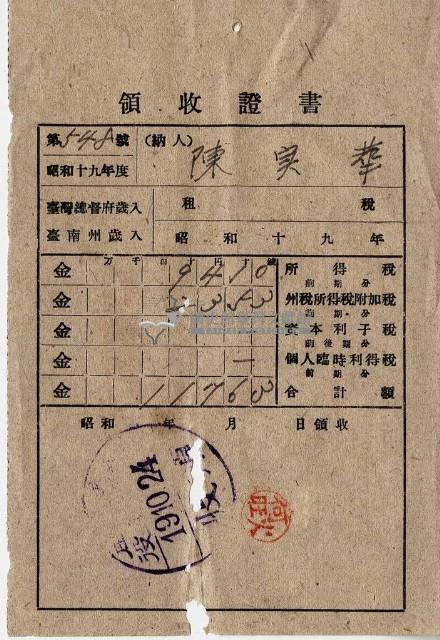 領收證書
第548號
(納人)
陳実華
昭和十九年度
臺灣總督府歲入
臺南州歲入
租 稅
昭和十九年
万千百十円十錢
金 9410 所得稅
前期分
金 2353 州稅所得稅附加稅
前期分
金 資本利子稅
前後期分
金 一 個人臨時利得稅
前期分
金 11763 合計額
昭和 年 月 日領收
19.10.24
收